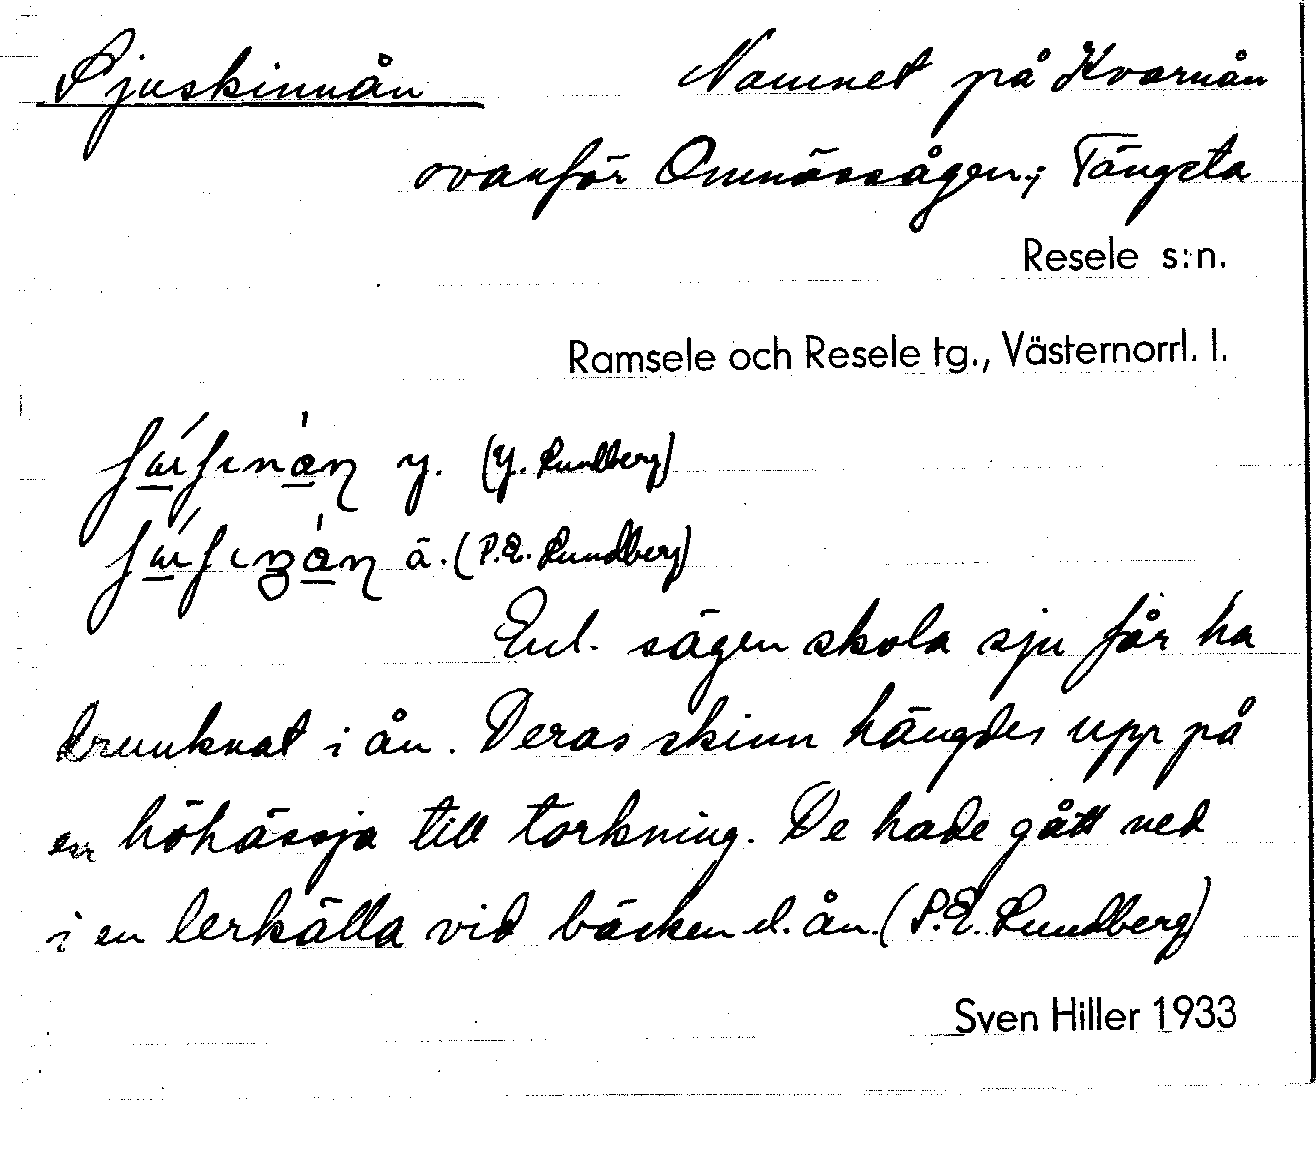 Sjuskinnån Namnet på Kvarnån
ovanför Omnässågen; Tängsta
Resele s:n.
Ramsele och Resele tg., Västernorrl. l.
y. (Y. Lundberg)
ä. (P.E. Lundberg)
Enl. sägen skola sju får ha
drunknat i ån. Deras skinn hängdes upp på
en höhässja till torkning. De hade gått ned
i en lerkälla vid bäcken el. ån. (P.E. Lundberg)
Sven Hiller 1933